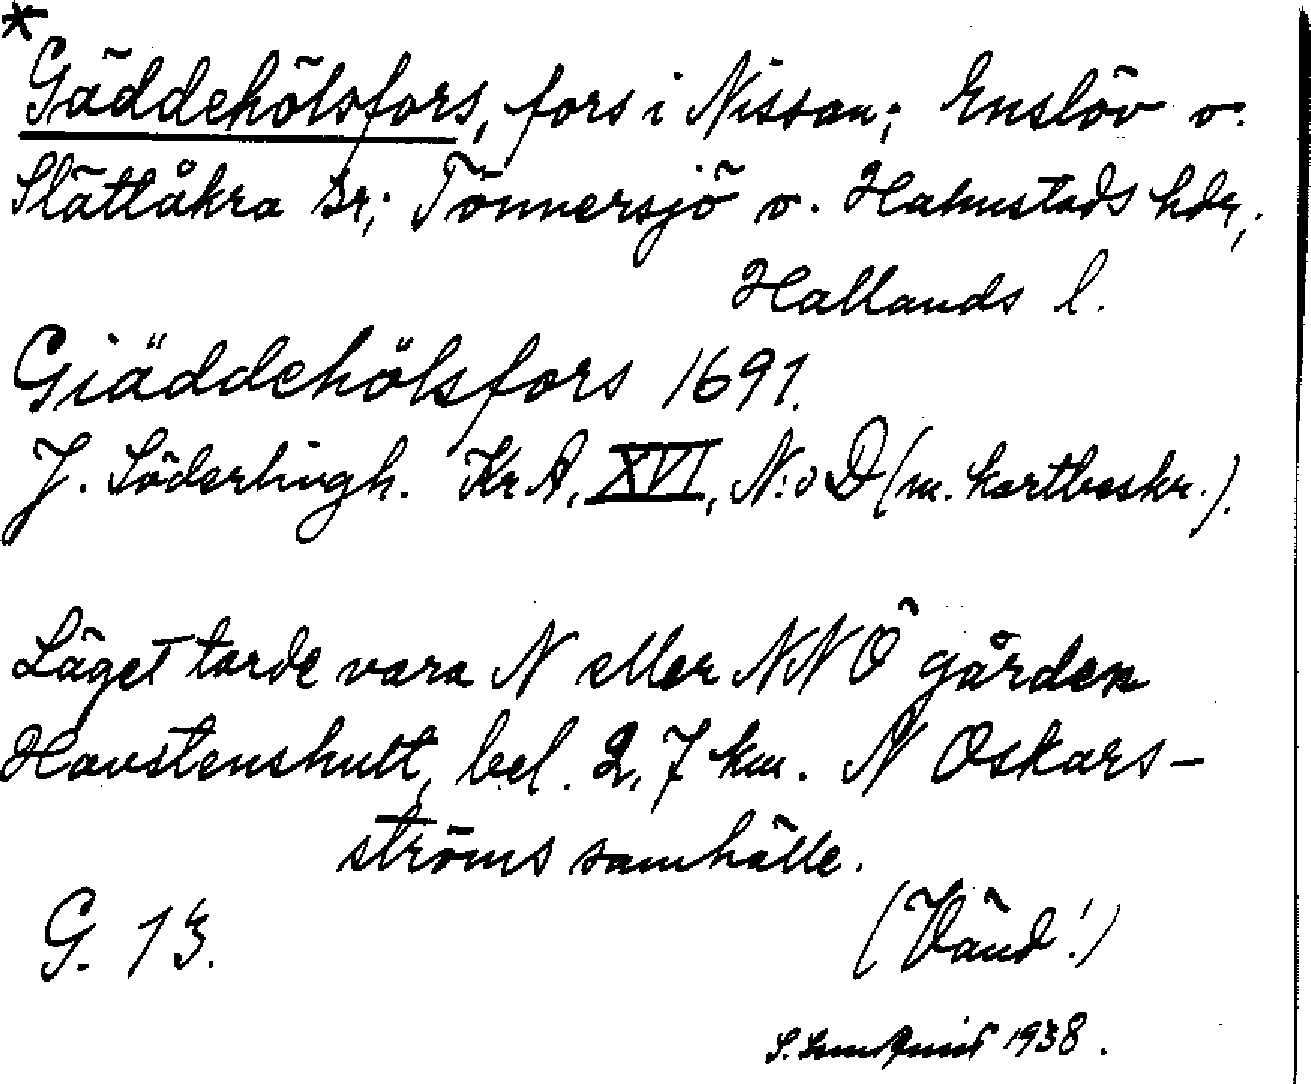 *
Gäddehölsfors, fors i Nissan; Enslöv o.
Slättåkra sr; Tönnersjö o. Halmstads hdr,
Hallands l.
Giäddehölsfors 1691.
J. Söderlingh. KrA, XVI, N:o D (m. kartbeskr.).
Läget torde vara N eller NNÖ gården
Havstenshult, bel. 2,7 km. N Oskars-
ströms samhälle.
G. 13. (Vänd!)
S. 1938.